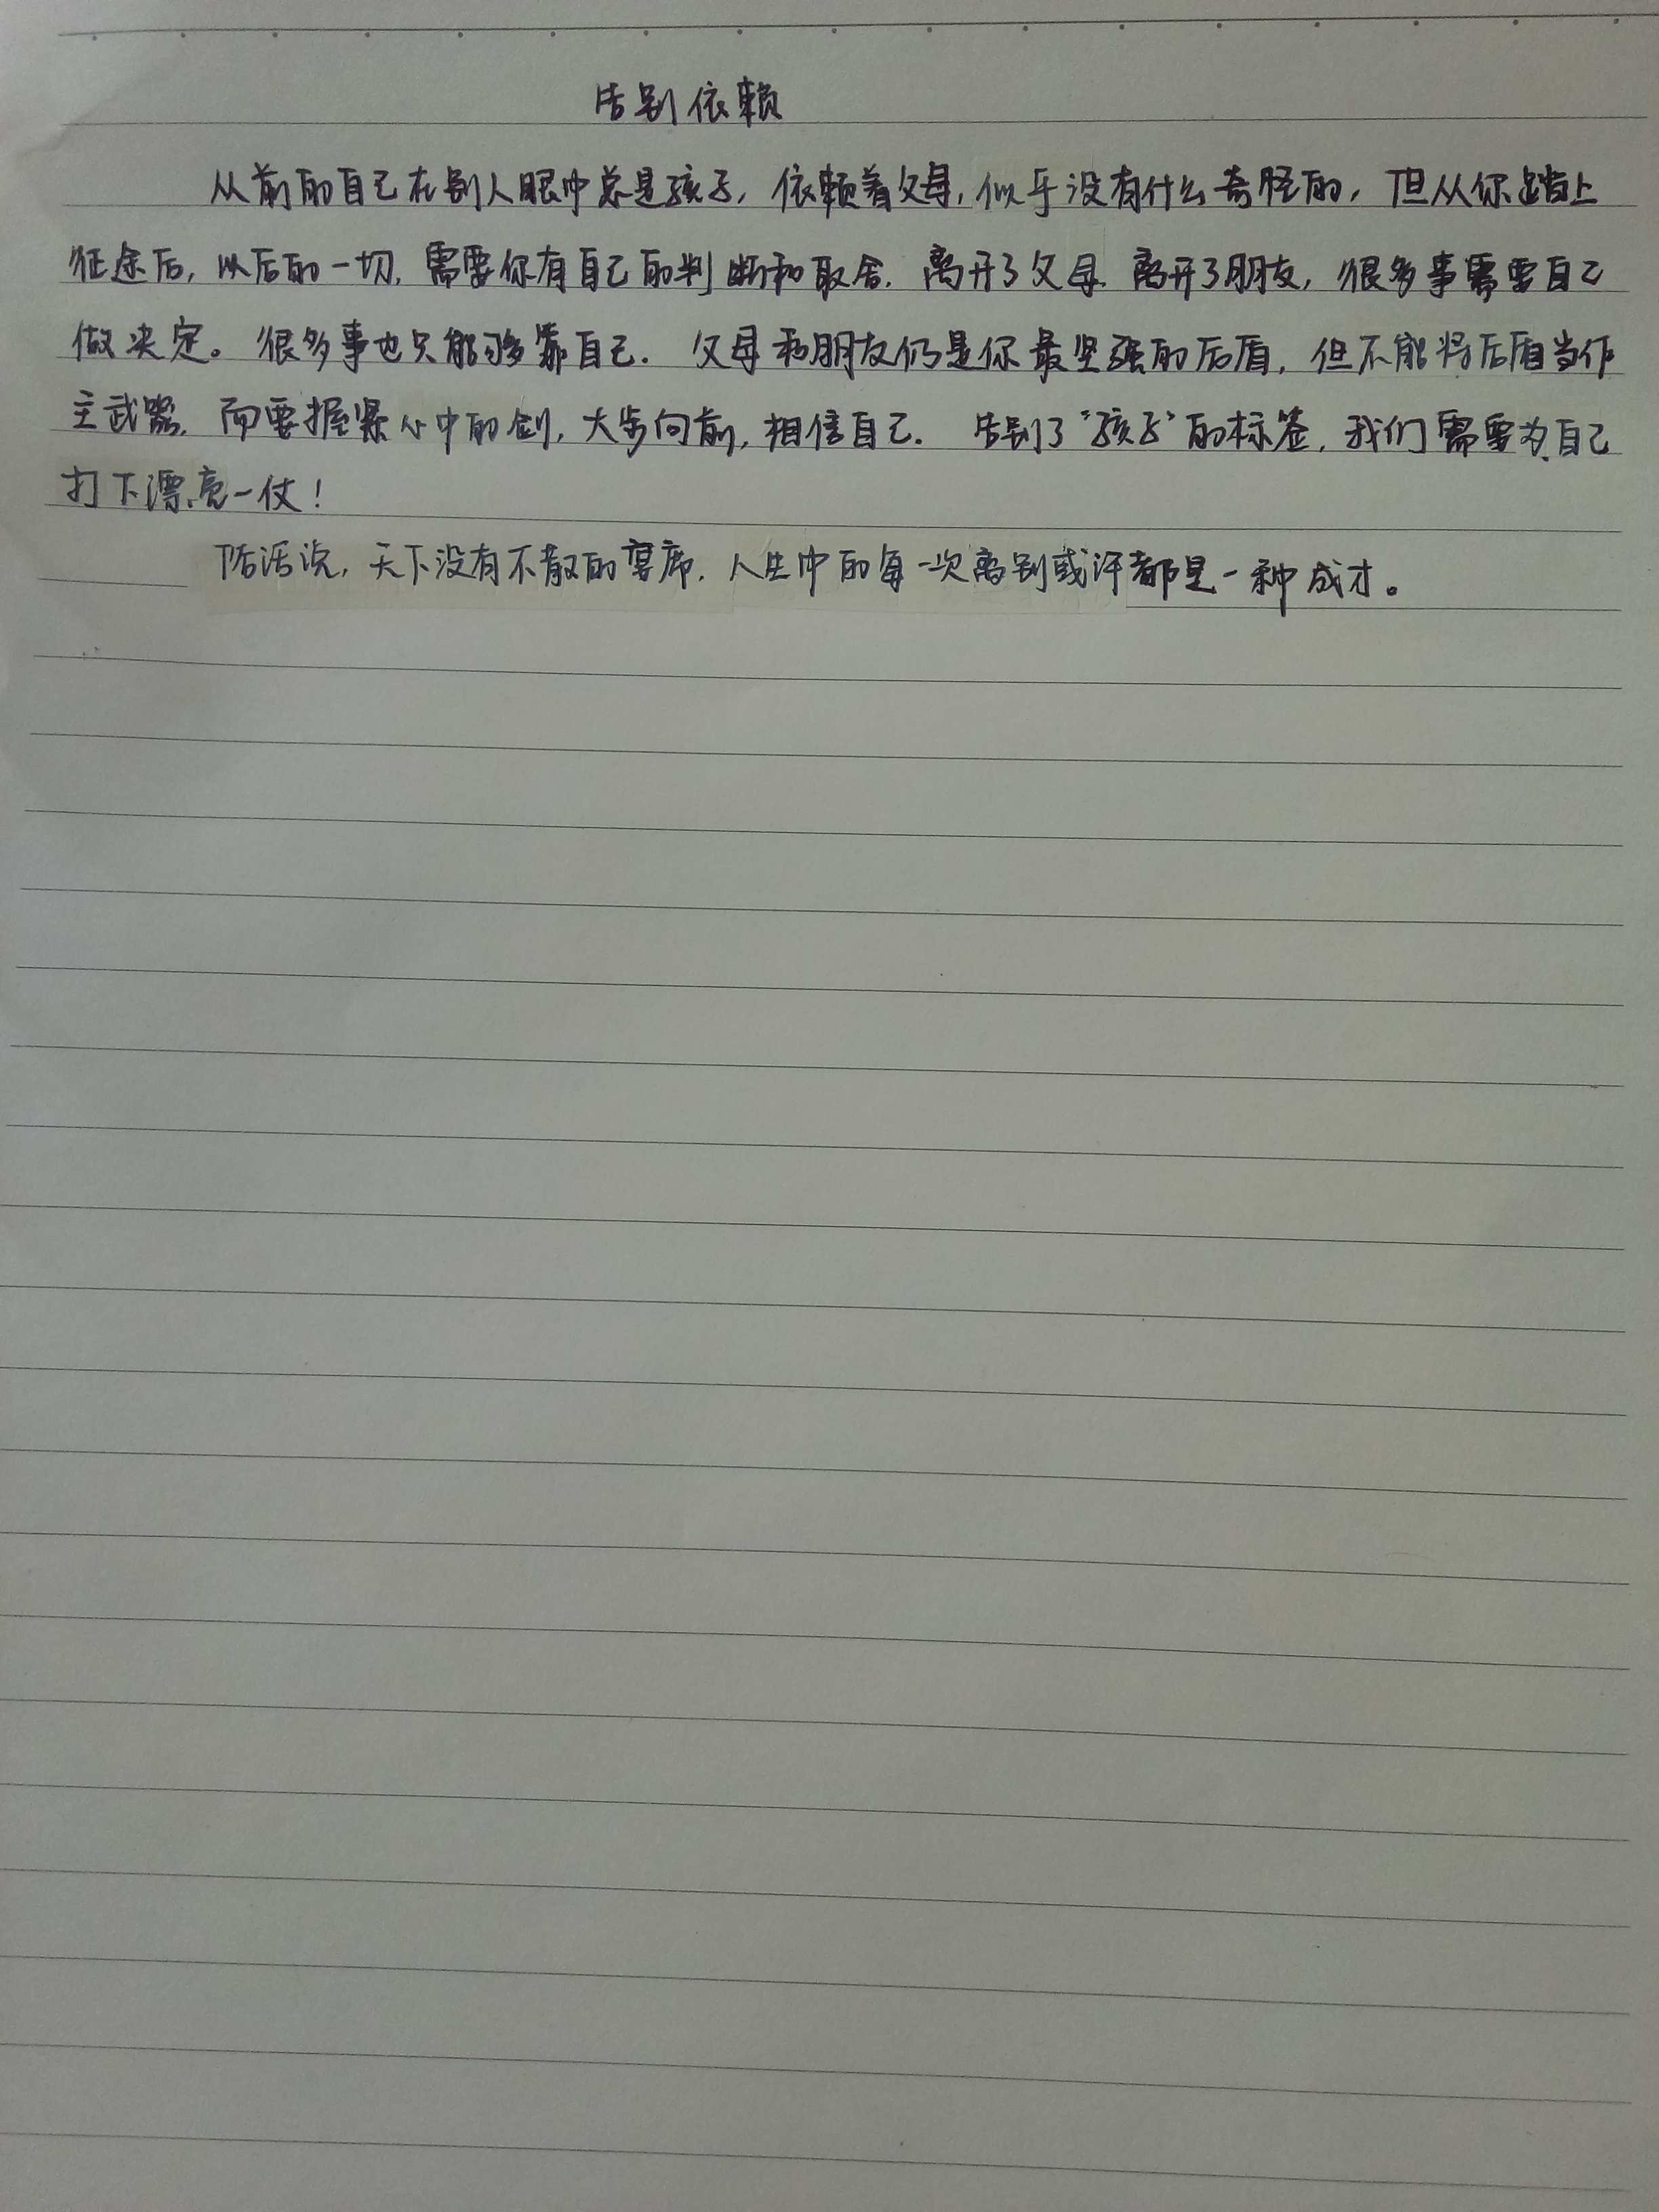 告别依赖
从前的自己在别人眼中总是孩子，依赖着父母，似乎没有什么奇怪的，但从你踏上
征途后，以后的一切，需要你有自己的判断和取舍．离开了父母．离开了朋友，很多事需要自己
做决定。很多事也只能够靠自己．父母和朋友仍是你最坚强的后盾，但不能将后盾当作
主武器，而要握紧心中的剑，大步向前，相信自己．告别了“孩子”的标签，我们需要为自己
打下漂亮一仗！
俗话说，天下没有不散的宴席．人生中的每一次离别或许都是一种成才。